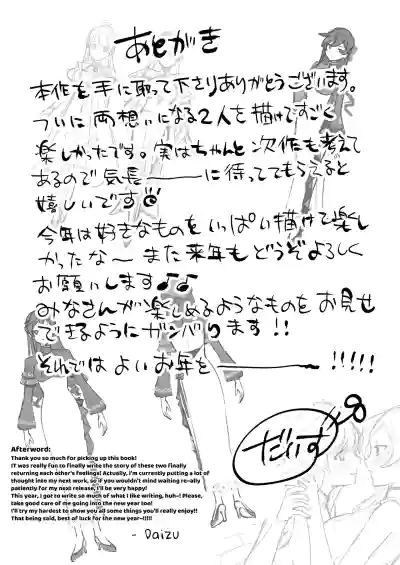 あとがき
本作を手に取って下さりありがとうございます。
ついに両想いになる2人を描けてすごく
楽しかったです。実はちゃんと次作も考えて
あるので気長———に待っててもらえると
嬉しいです
今年は好きなものをいっぱい描けて楽し
かったな〜 また来年もどうぞよろしく
お願いします♪♪
みなさんが楽しめるようなものをお見せ
できるようにガンバります!!
それでは よいお年を———!!!!!
だいず
Afterword:
Thank you so much for picking up this book!
IT was really fun to finally write the story of these two finally
returning each other's feelings! Actually, I'm currently putting a lot of
thought into my next work, so if you wouldn't mind waiting re-ally
patiently for my next release, I'll be very happy!
This year, I got to write so much of what I like writing, huh~! Please,
take good care of me going into the new year too!
I'll try my hardest to show you all some things you'll really enjoy!!
That being said, best of luck for the new year~!!!!!
- Daizu